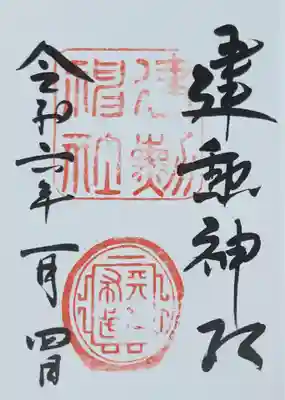 建勲神社
令和六年一月四日
建勳
神社